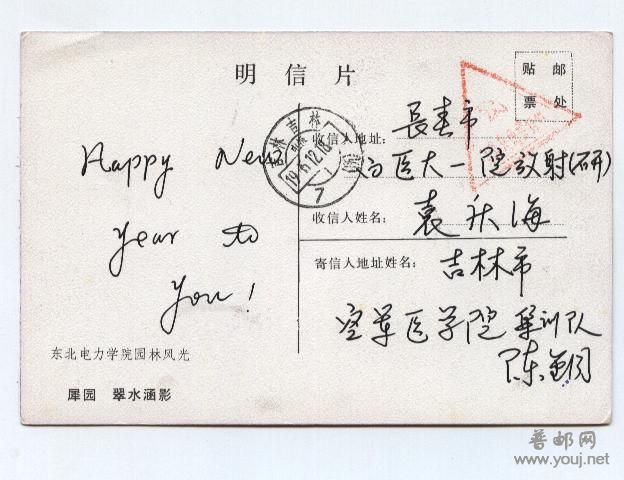 明信片
贴邮
票处
收信人地址:
長春市
白医大一院放射(研)
收信人姓名:
袁庆海
寄信人地址姓名:
吉林市
空军医学院集训队
陈
Happy New
Year to
You!
吉林 吉林
7
东北电力学院园林风光
犀园 翠水涵影
普邮网
www.youj.net